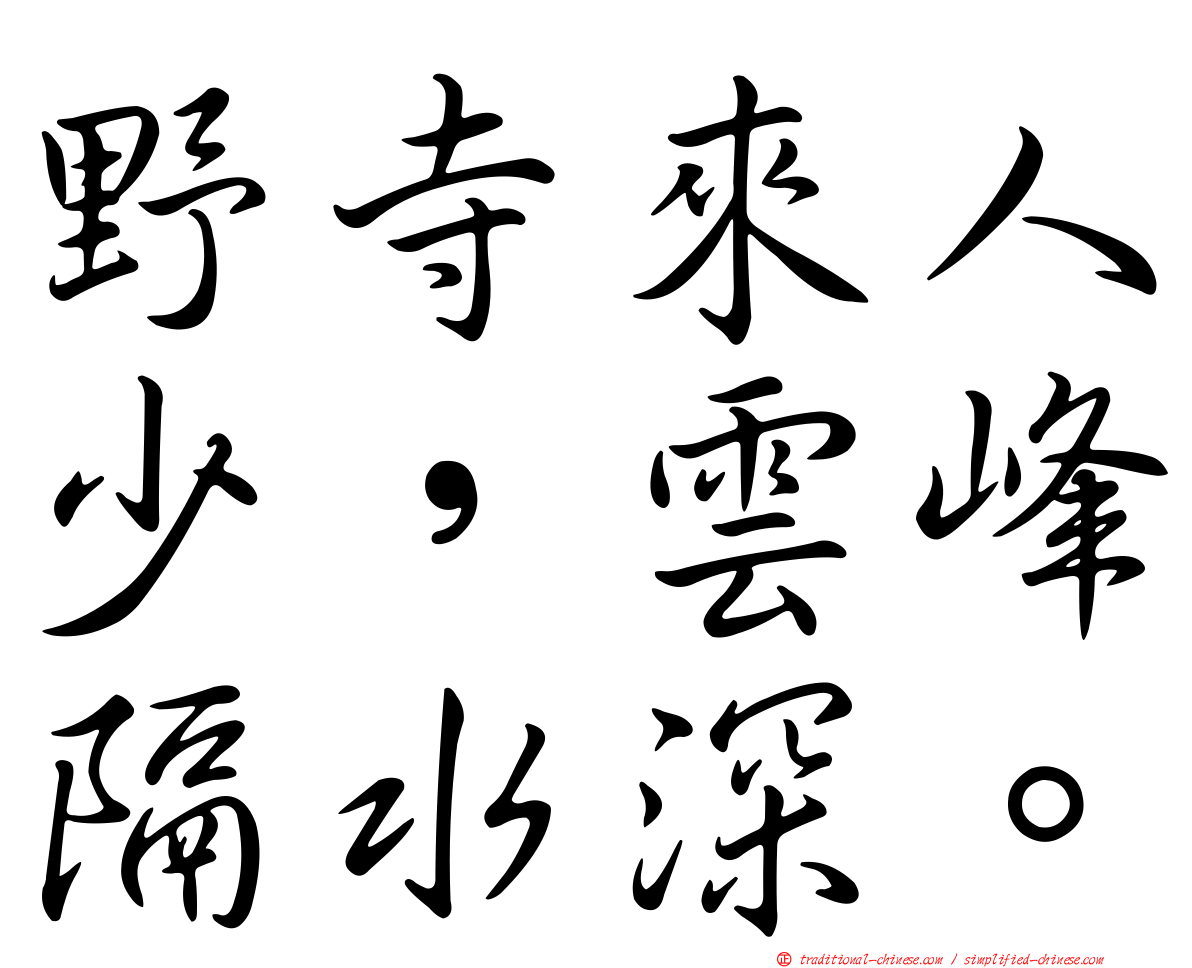 野寺來人
少，雲峰
隔水深。
㊣ traditional-chinese.com / simplified-chinese.com